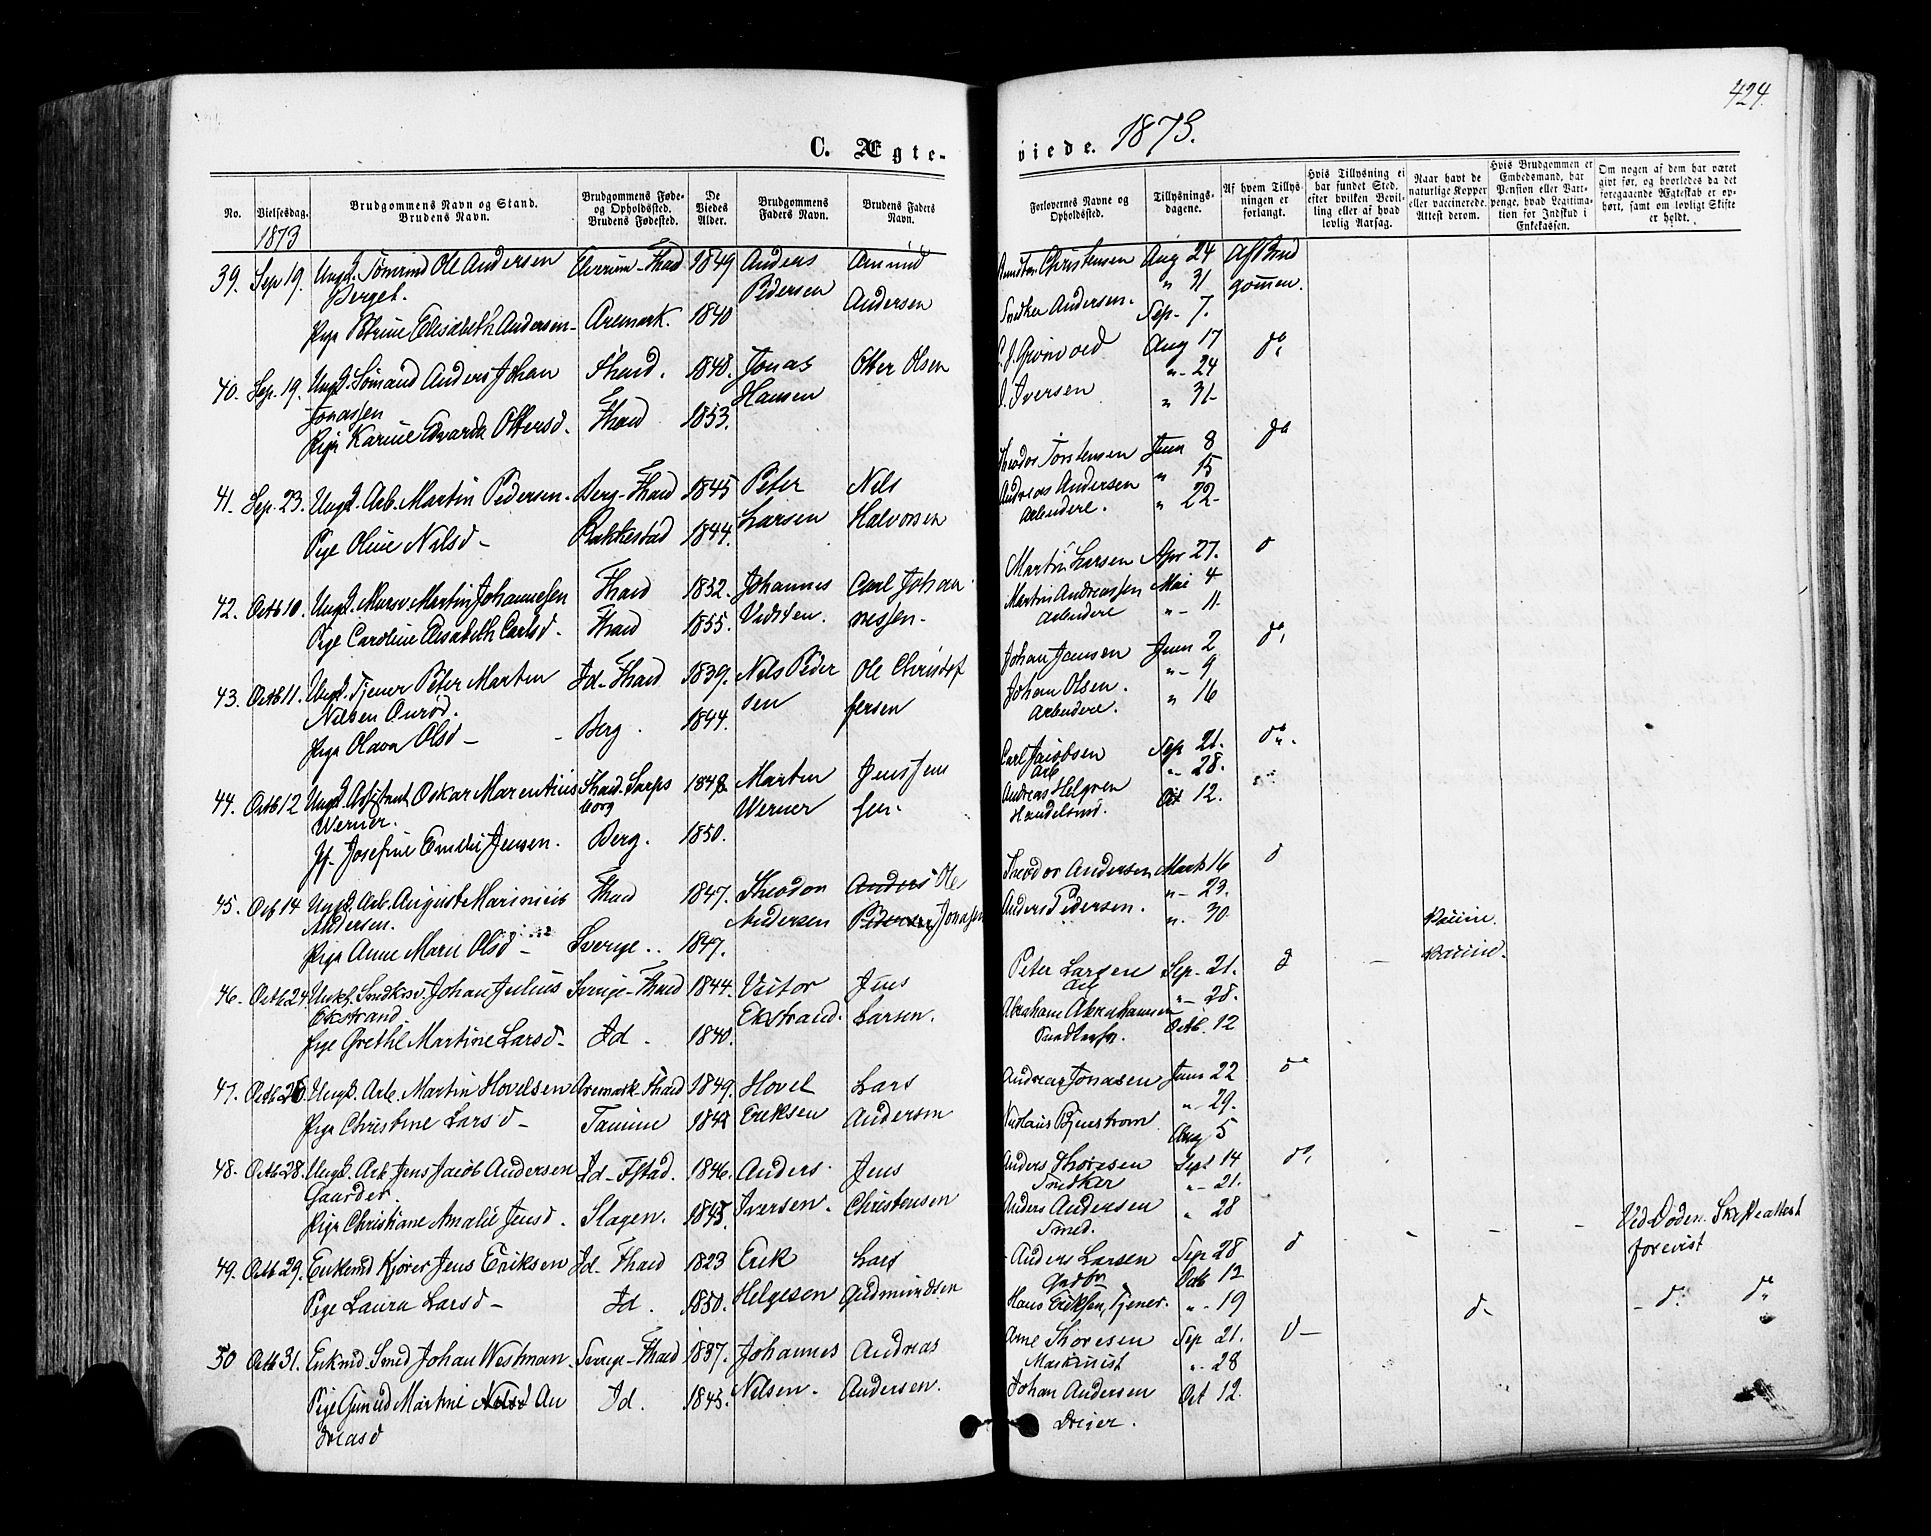 424.
C. Ægte-
viede. 1873.
No.
Vielsesdag.
Brudgommens Navn og Stand.
Brudens Navn.
Brudgommens Føde-
og Opholdsted.
Brudens Fødested.
De
Viedes
Alder.
Brudgommens
Faders Navn.
Brudens Faders
Navn.
Forlovernes Navne og
Opholdsted.
Tillysnings-
dagene.
Af hvem Tillys-
ningen er
forlangt.
Hvis Tillysning ei
har fundet Sted,
efter hvilken Bevil-
ling eller af hvad
lovlig Aarsag.
Naar havt de
naturlige Kopper
eller vaccinerede.
Attest derom.
Hvis Brudgommen er
Embedsmand, har
Pension eller Vart-
penge, hvad Legitima-
tion for Indskud i
Enkekassen.
Om nogen af dem har været
gift før, og hvorledes da det
foregaaende Ægteskab er op-
hørt, samt om lovligt Skifte
er holdt.
1873
39. Sep 19. Ungk. Tømrmd Ole Andersen Elverum-Fhald 1849 Anders Amund Christensen Aug 24 Af Brud
Berget. Pedersen Andersen " 31 gommen.
Pige Petrine Elisabeth Andersen- Aremark. 1840 Snedker Andersen. Sep. 7.
40. Sep. 19. Ungk. Sømand Anders Johan Fhald. 1848. Jonas Otter Olsen Aug 17 do
Jonassen Hansen " 24
Pige Karine Edvarda Ottersd. Fhald 1853. J. Iversen " 31
41. Sep. 23. Ungk. Arb. Martin Pedersen. Berg-Fhald 1845 Peter Nils Theodor Torstensen Juni 8 do
Larsen Halvorsen Andreas Andersen " 15
Pige Oline Nilsd- Rakkestad 1844. Arbeidere. " 22
42. Octb 10. Ungk. Mursv. Martin Johannesen Fhald 1852. Johannes Carl Johan Martin Larsen Apr 27. d
nessen. Martin Andreassen Mai 4
Pige Caroline Elisabeth Carlsd. Fhald 1855. Arbeidere " 11.
43. Octb 11. Ungk. Tjener Peter Martin Id-Fhald 1839. Nils Peder Ole Christof Johan Jansen Juni 2 do
Nilsen sen fersen " 9
Pige Olava Olsd- Berg. 1844. Johan Olsen. Arbeidere. " 16
44. Octb 12 Ungk. Assistent Oskar Marentius Fhald-Sarps 1848 Martin Jens Jen Carl Jacobsen Sep 21. do.
Werner. borg Werner sen. Arb " 28.
Jf. Josefine Emilie Jensen. Berg. 1850. Andreas Helgren Handelsmd. Oct 12.
45. Octb 14. Ungk. Arb. August Marinius Fhald 1847. Theodor Anders Ole Theodor Andersen Marts 16 d
Andersen. Andersen Pedersen Jonasen Anders Pedersen. " 23.
Pige Anne Marie Olsd- Sverge. 1847. " 30.
Vaccin.
Vaccind.
46. Octb 24. Johan Julius Sverige-Fhald 1844. Victor Jens Peter Larsen Sep. 21. d
Ekstrand. Ekstrand. Larsen. Arb " 28.
Pige Grethe Martine Larsd- Id. 1840. Abraham Abrahamsen Octb. 12
47. Octb 26. Ungk. Arb. Martin Hovelsen Aremark-Fhald 1849. Hovel Lars Andreas Jonasen Juni 22 do
Eriksen Andersen " 29.
Pige Christine Larsd- 1842 Aug 5
48. Octb 28. Ungk. Arb. Jens Jacob Andersen Id-Fstad. 1846. Anders Jens Anders Thoresen Sept 14 do,
Gaarder. Iversen. Christensen Snedker " 21.
Pige Christiane Amalie Jensd. Slagen. 1845. Anders Andersen Smed. " 28
49. Octb 29. Enkemd Kjører Jens Eriksen Id-Fhald 1823 Erik Lars Anders Larsen Sep 28 d
Helgesen Gudmundsen Gadbr Octb 12
Pige Laura Larsd- Id. 1850. Hans Eriksen, Tjener. " 19
Ved Døden. Skifteattest
forevist
50 Octb 31. Enkmd. Smed Johan Westman. Sverige-Fhald 1837. Johannes Andreas Arne Thoresen Sep 21. d-
Nilsen. Andersen. Maskinist " 28
Pige Gunild Martine Nilsd An Id. 1845. Johan Andersen Oct 12. d- - do. do
dreasd Dreier.